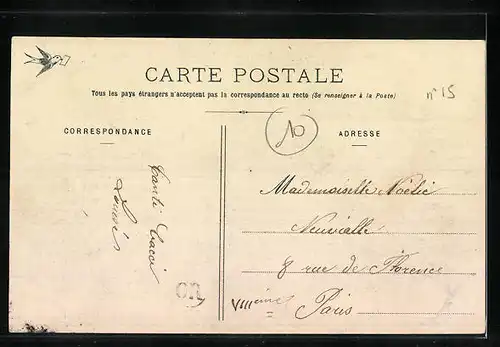 CARTE POSTALE
Tous les pays étrangers n'acceptent pas la correspondance au recto (Se renseigner à la Poste)
n° 15
10
CORRESPONDANCE
ADRESSE
Mademoiselle Noélie
Neuvialle
8 rue de Florence
VIIIème
Paris